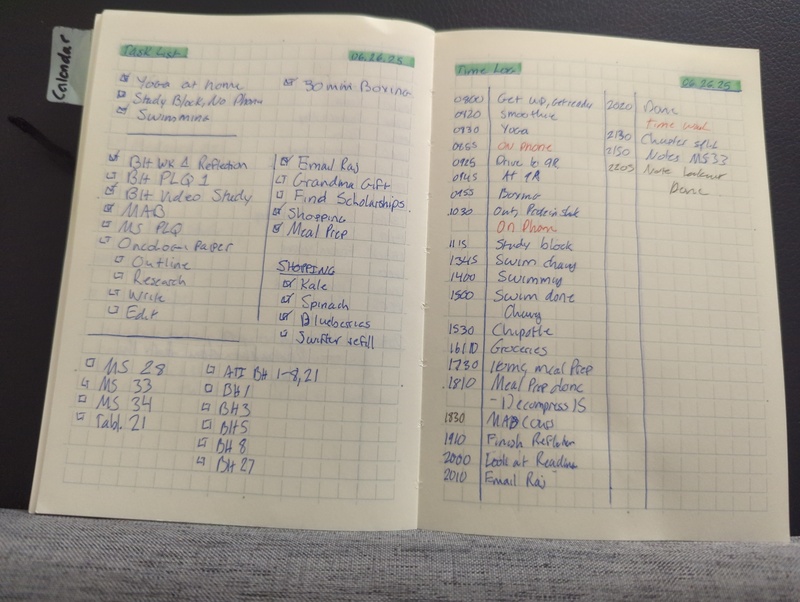 Calendar
Task List
06.26.25
Yoga at home
Study Block, No Phone
Swimming
30 min Boxing
BH WK 4 Reflection
BH PLQ 1
BH Video Study
MAB
MS PLQ
Oncology Paper
Outline
Research
Write
Edit
Email Raj
Grandma Gift
Find Scholarships
Shopping
Meal Prep
SHOPPING
Kale
Spinach
Blueberries
Swiffer refill
MS 28
MS 33
MS 34
Tabl. 21
ATI BH 1-8, 21
BH 1
BH 3
BH 5
BH 8
BH 27
Time Log
06.26.25
0800 Get up, get ready
0820 Smoothie
0830 Yoga
0855 On Phone
0925 Drive to 9R
0945 At 9R
0955 Boxing
1030 Out, Protein shake
On Phone
1115 Study block
1345 Swim chang
1400 Swimming
1500 Swim done
Chang
1530 Chipotle
1610 Groceries
1730 Home, meal Prep
1810 Meal Prep done
- Decompress 15
1830 MAB
1910 Finish Reflection
2000 Look at Reading
2010 Email Raj
2020 Done
Time
2130 Chapter split
2150 Notes MS33
2205 Note
Done